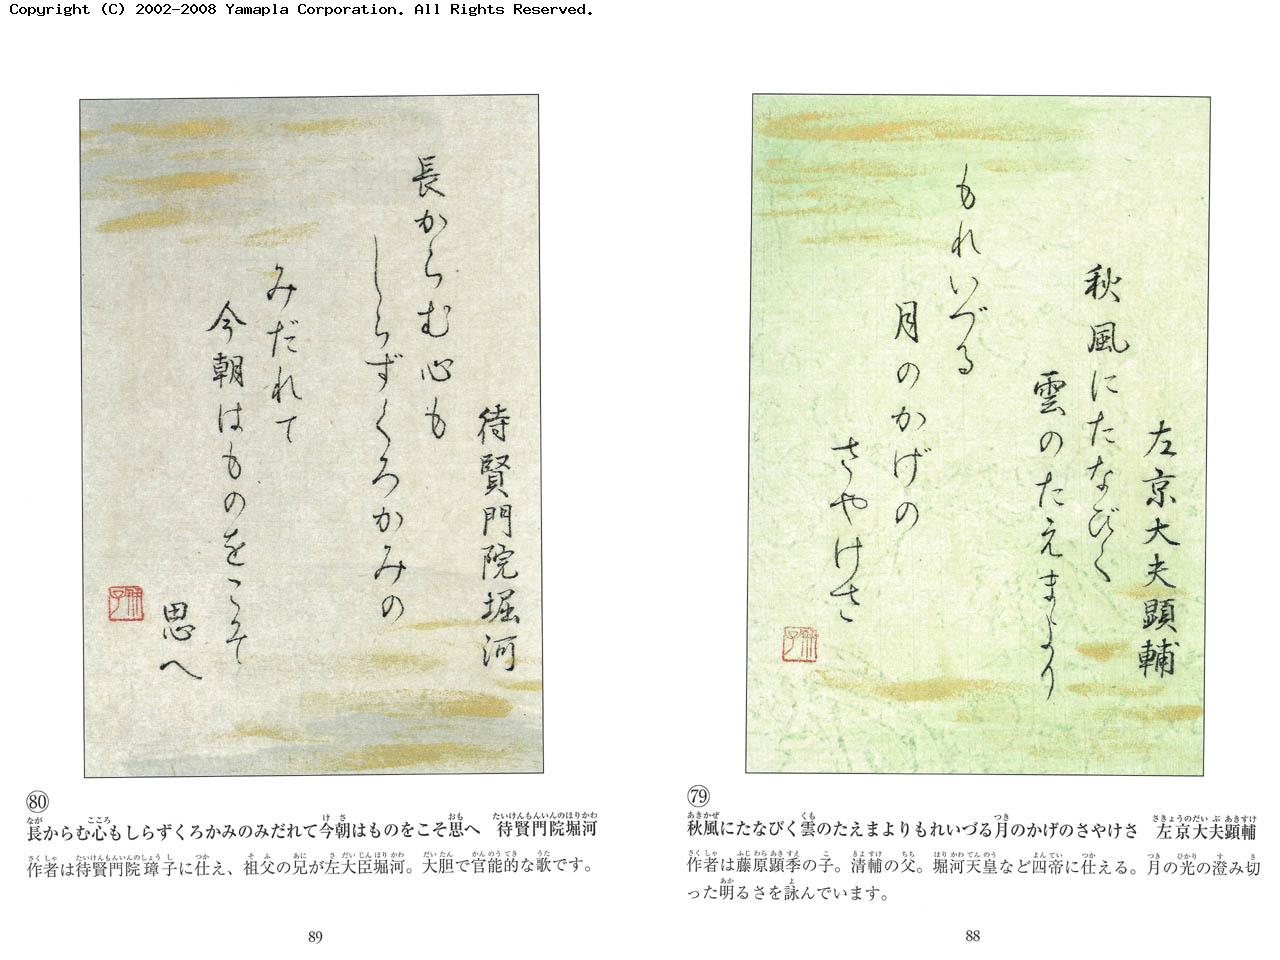 Copyright (C) 2002-2008 Yamapla Corporation. All Rights Reserved.
左京大夫顕輔
秋風にたなびく
雲のたえまより
もれいづる
月のかげの
さやけさ
㊾
秋風にたなびく雲のたえまよりもれいづる月のかげのさやけさ　左京大夫顕輔
作者は藤原顕季の子。清輔の父。堀河天皇など四帝に仕える。月の光の澄み切
った明るさを詠んでいます。
88
待賢門院堀河
長からむ心も
しらずくろかみの
みだれて
今朝はものをこそ
思へ
80
長からむ心もしらずくろかみのみだれて今朝はものをこそ思へ　待賢門院堀河
作者は待賢門院璋子に仕え、祖父の兄が左大臣堀河。大胆で官能的な歌です。
89